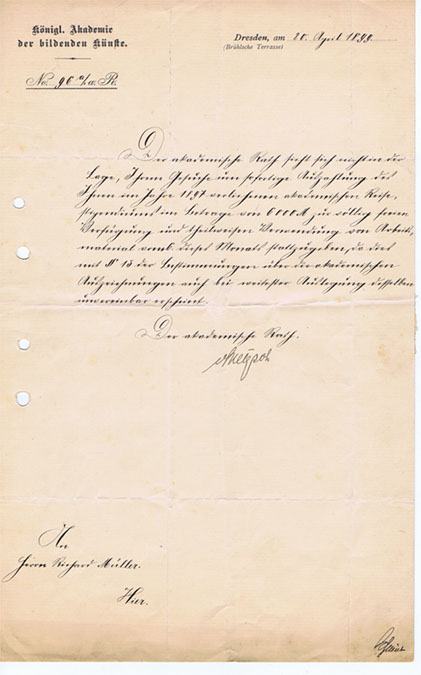 Königl. Akademie
der bildenden Künste.
Dresden, am 20. April 1899.
(Brühlsche Terrasse)
No. 96 a/a. R.
Der akademische Rath sieht sich nicht in der
Lage, Ihrem Gesuche um sofortige Auszahlung des
Ihnen im Jahre 1897 verliehenen akademischen Reise,
stipendiums im Betrage von 6000 M zu völlig freier
Verfügung und theilweisen Verwendung von Arbeits,
material dieses Monats stattzugeben, da dies
mit § 13 der Bestimmungen über die akademischen
Auszeichnungen auch bei weitester Auslegung desselben
unvereinbar erscheint.
Der akademische Rath.
An
Herrn Richard Müller.
Hier.